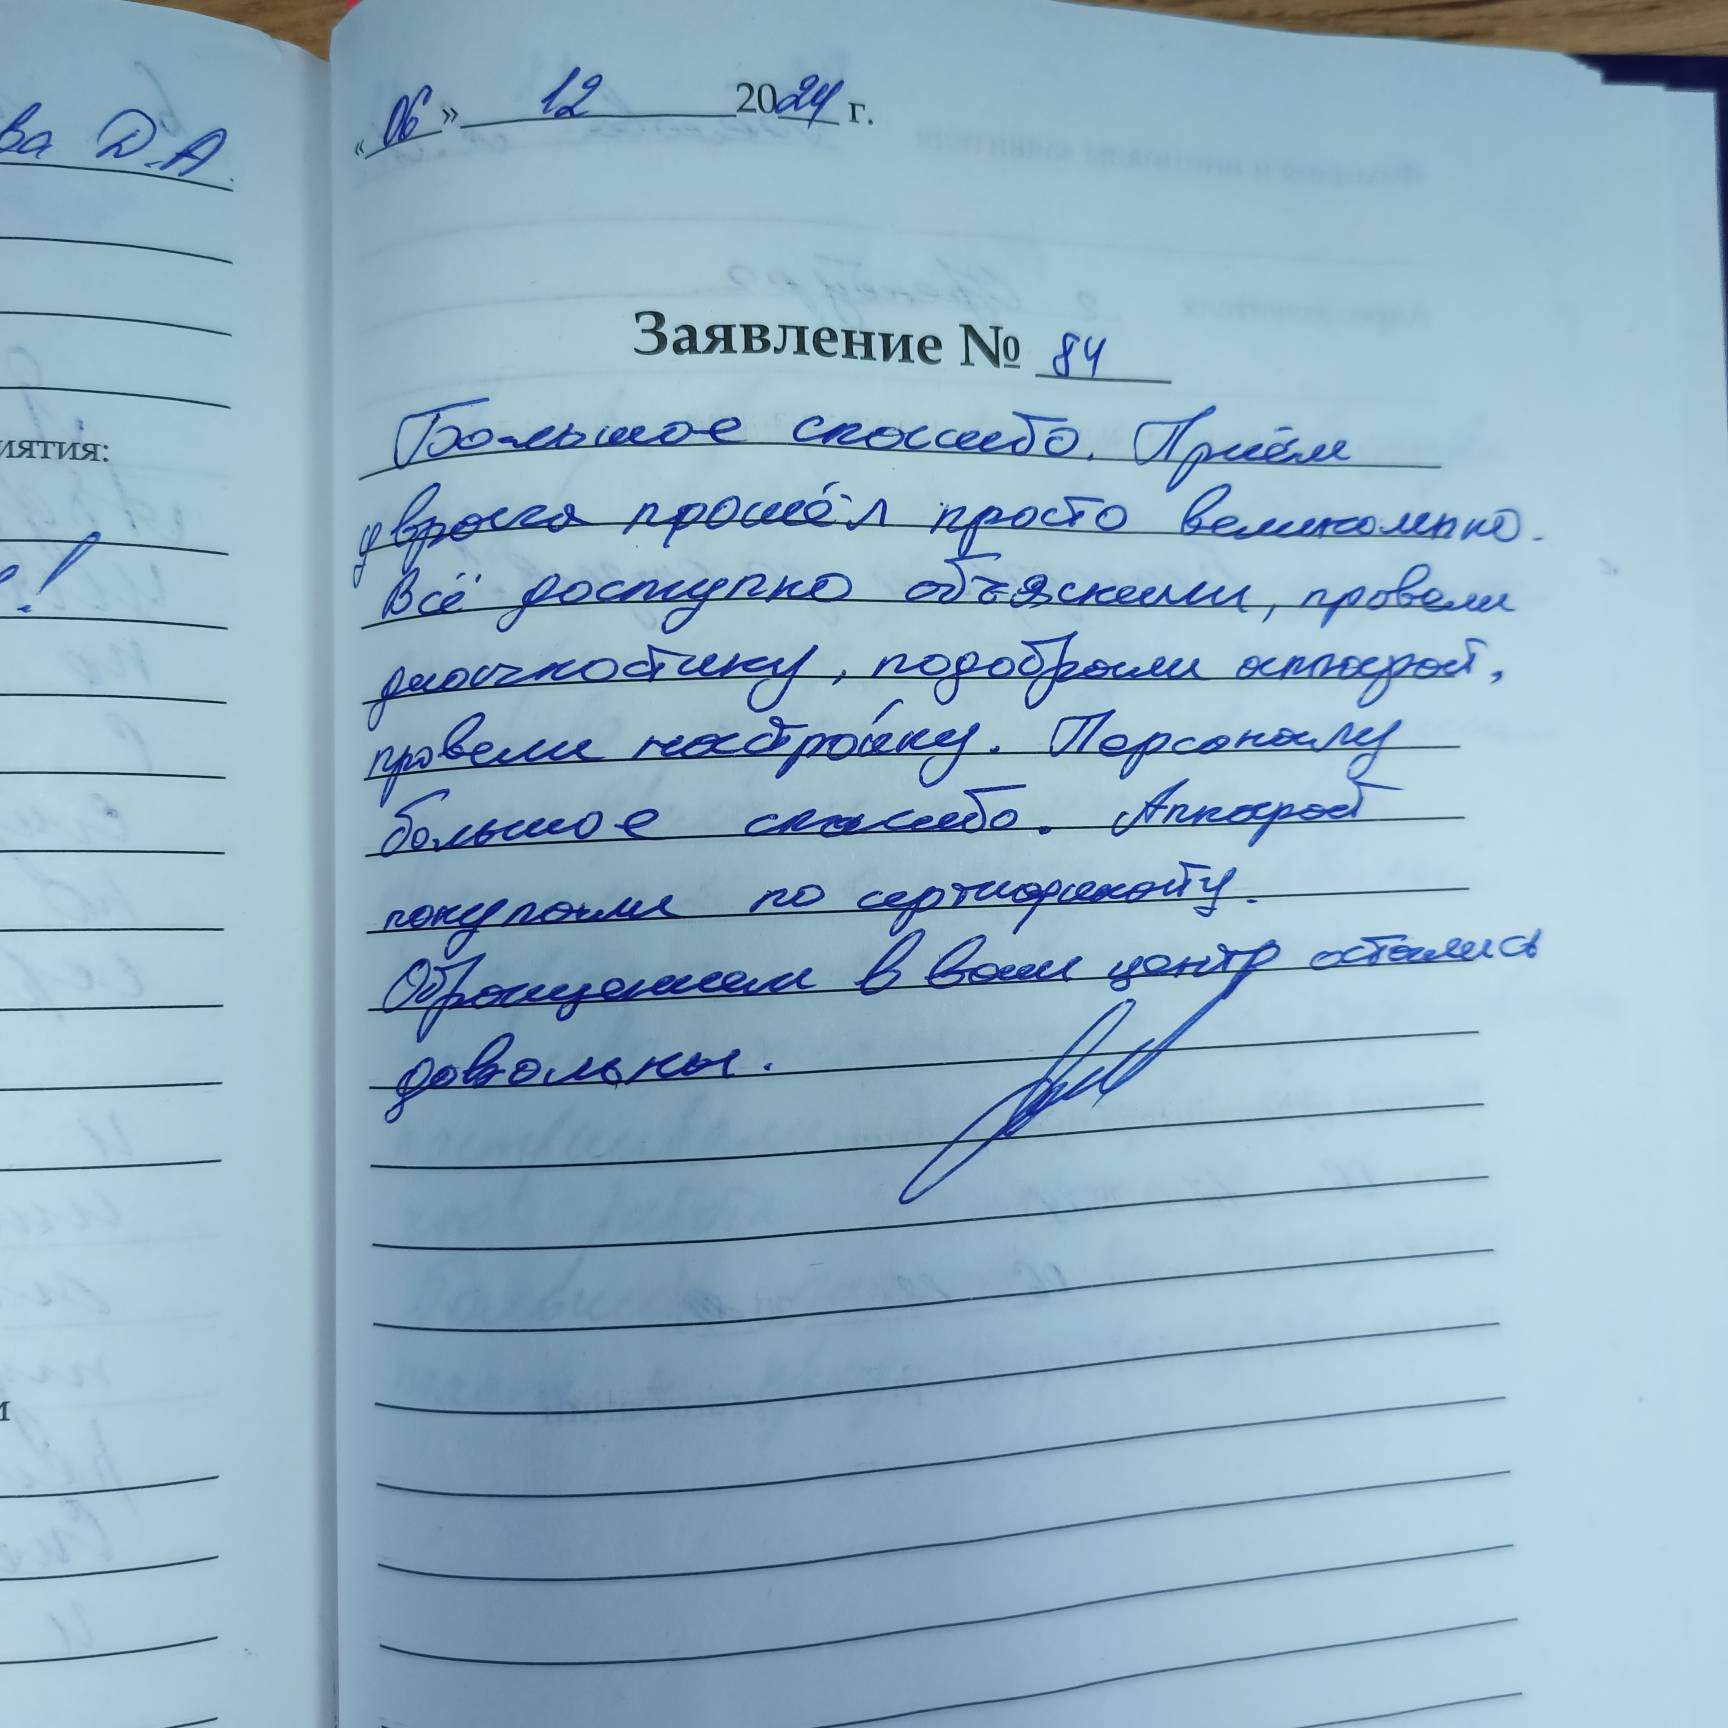 ва Д.А.
иятия:
!
и
«06» 12 2024 г.
Заявление № 84
Большое спасибо. Приём
у врача прошёл просто великолепно.
Всё доступно объяснили, провели
диагностику, подобрали аппарат,
провели настройку. Персоналу
большое спасибо. Аппарат
покупали по сертификату.
Обращением в ваш центр остались
довольны.